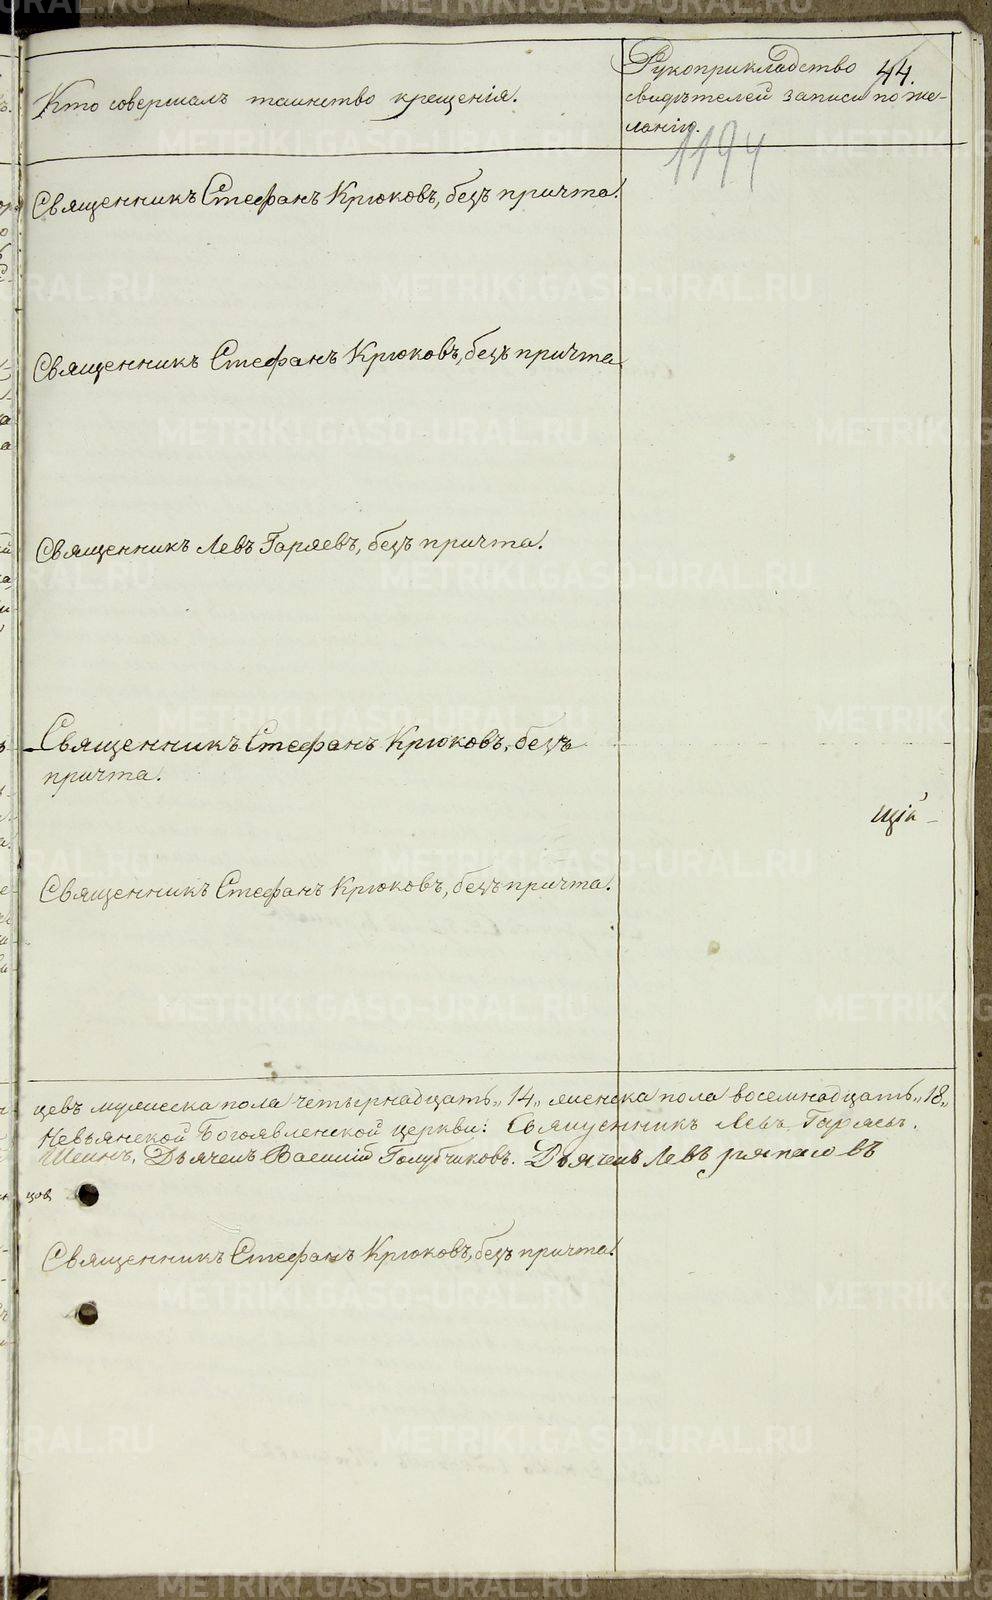 Кто совершалъ таинство крещенія.
Рукоприкладство 44.
свидѣтелей записи по же-
ланію.
1194
Священникъ Стефанъ Крюковъ, безъ причта.
Священникъ Стефанъ Крюковъ, безъ причта.
Священникъ Левъ Гаряевъ, безъ причта.
Священникъ Стефанъ Крюковъ, безъ
причта.
щій
Священникъ Стефанъ Крюковъ, безъ причта.
цевъ мужеска пола четырнадцать „14„ женска пола восемнадцать „18„
Невьянской Богоявленской церкви: Священникъ Левъ Гаряевъ.
Шеинъ. Дьячекъ Василій Голубчиковъ. Дьячекъ Левъ
цов
Священникъ Стефанъ Крюковъ, безъ причта.
METRIKI.GASO-URAL.RU